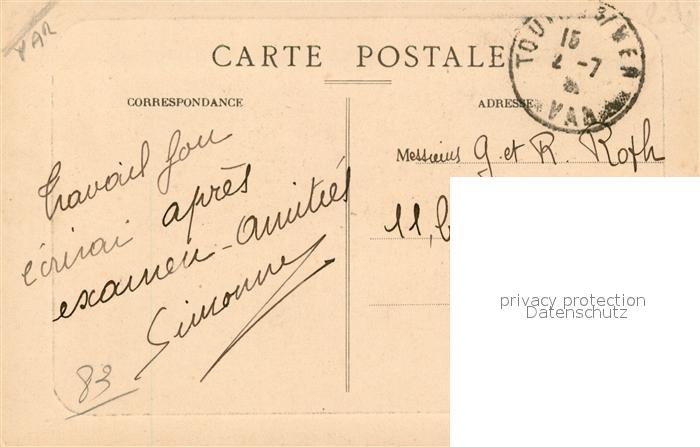 VAR
CARTE POSTALE
15
2-7
VAR
CORRESPONDANCE
ADRESSE
Messieurs G. et R. Roth
11,
travail fou
écrirai après
examen - amitiés
Simonne
83
privacy protection
Datenschutz